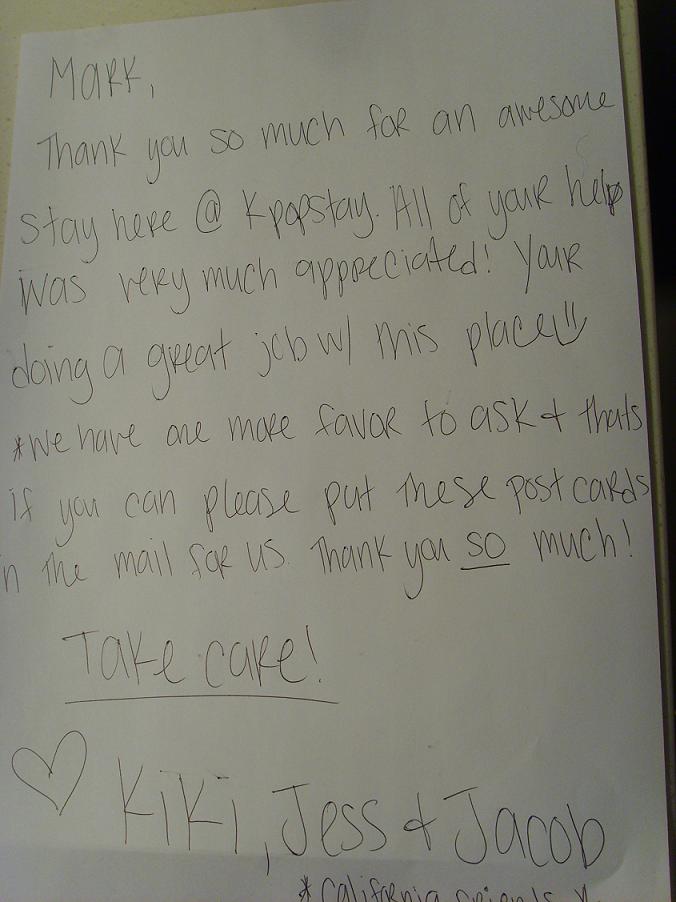 Mark,
Thank you so much for an awesome
stay here @ Kpopstay. All of your help
was very much appreciated! Your
doing a great job w/ this place
*We have one more favor to ask & thats
if you can please put these post cards
in the mail for us. Thank you so much!
Take care!
Kiki, Jess & Jacob
*California friends